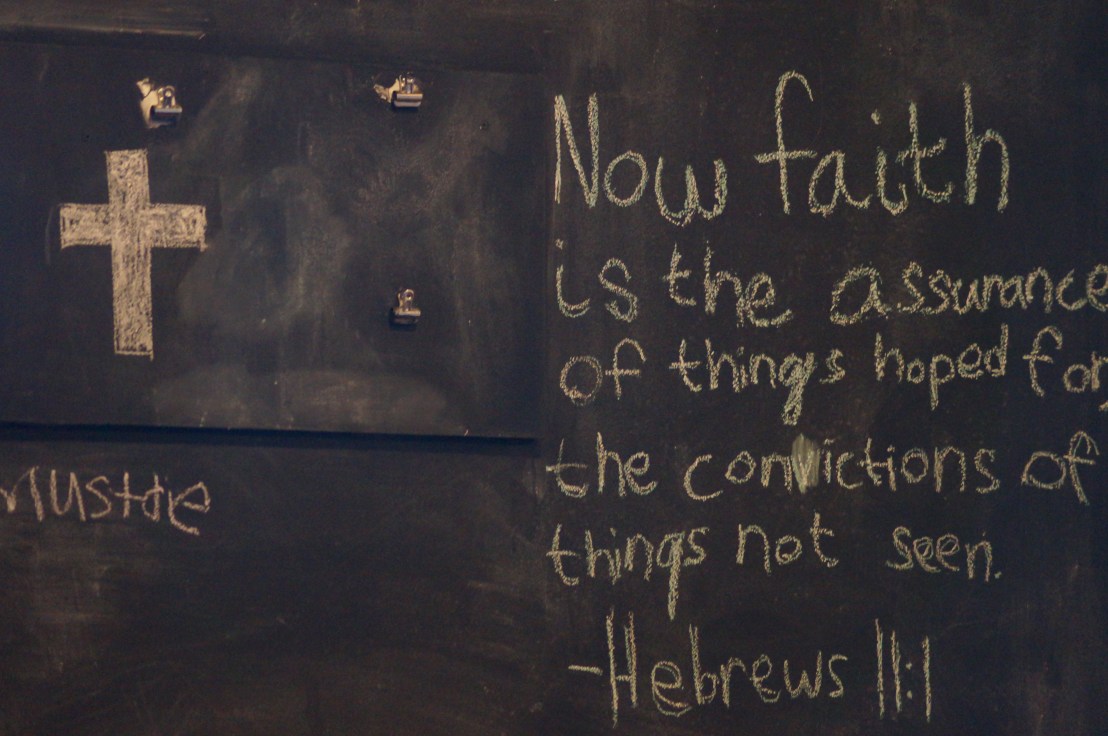 Now faith
is the assurance
of things hoped for,
the convictions of
things not seen.
-Hebrews 11:1